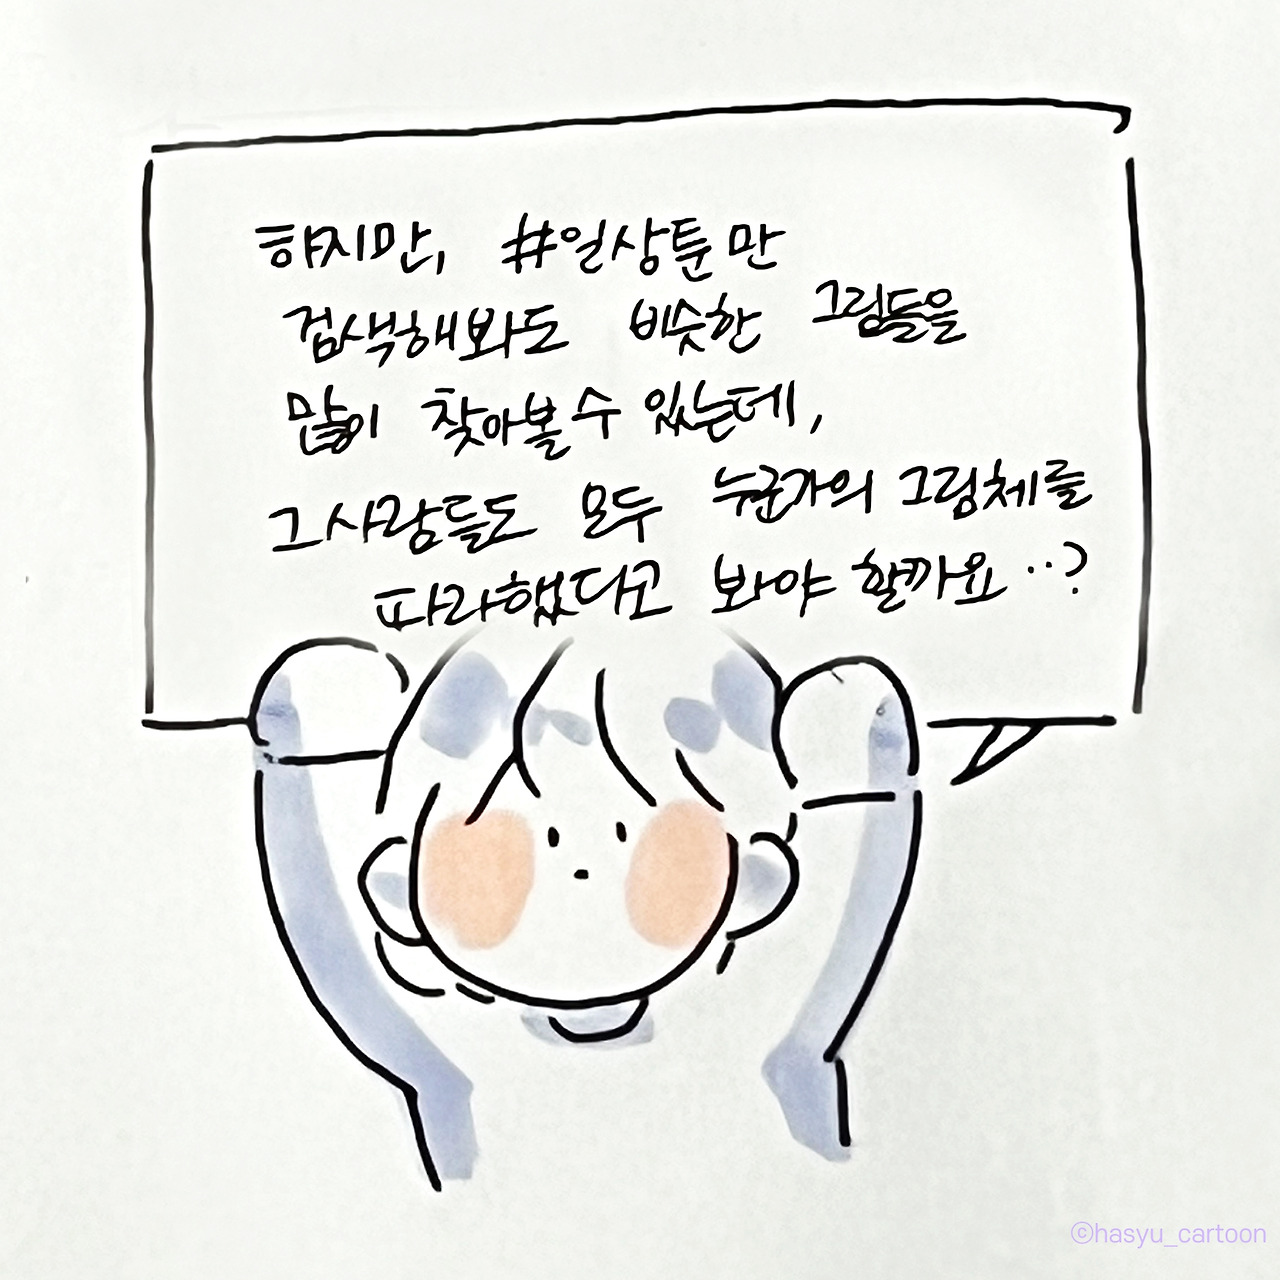 하지만, #일상툰만
검색해봐도 비슷한 그림들을
많이 찾아볼 수 있는데,
그 사람들도 모두 누군가의 그림체를
따라했다고 봐야 할까요..?
©hasyu_cartoon